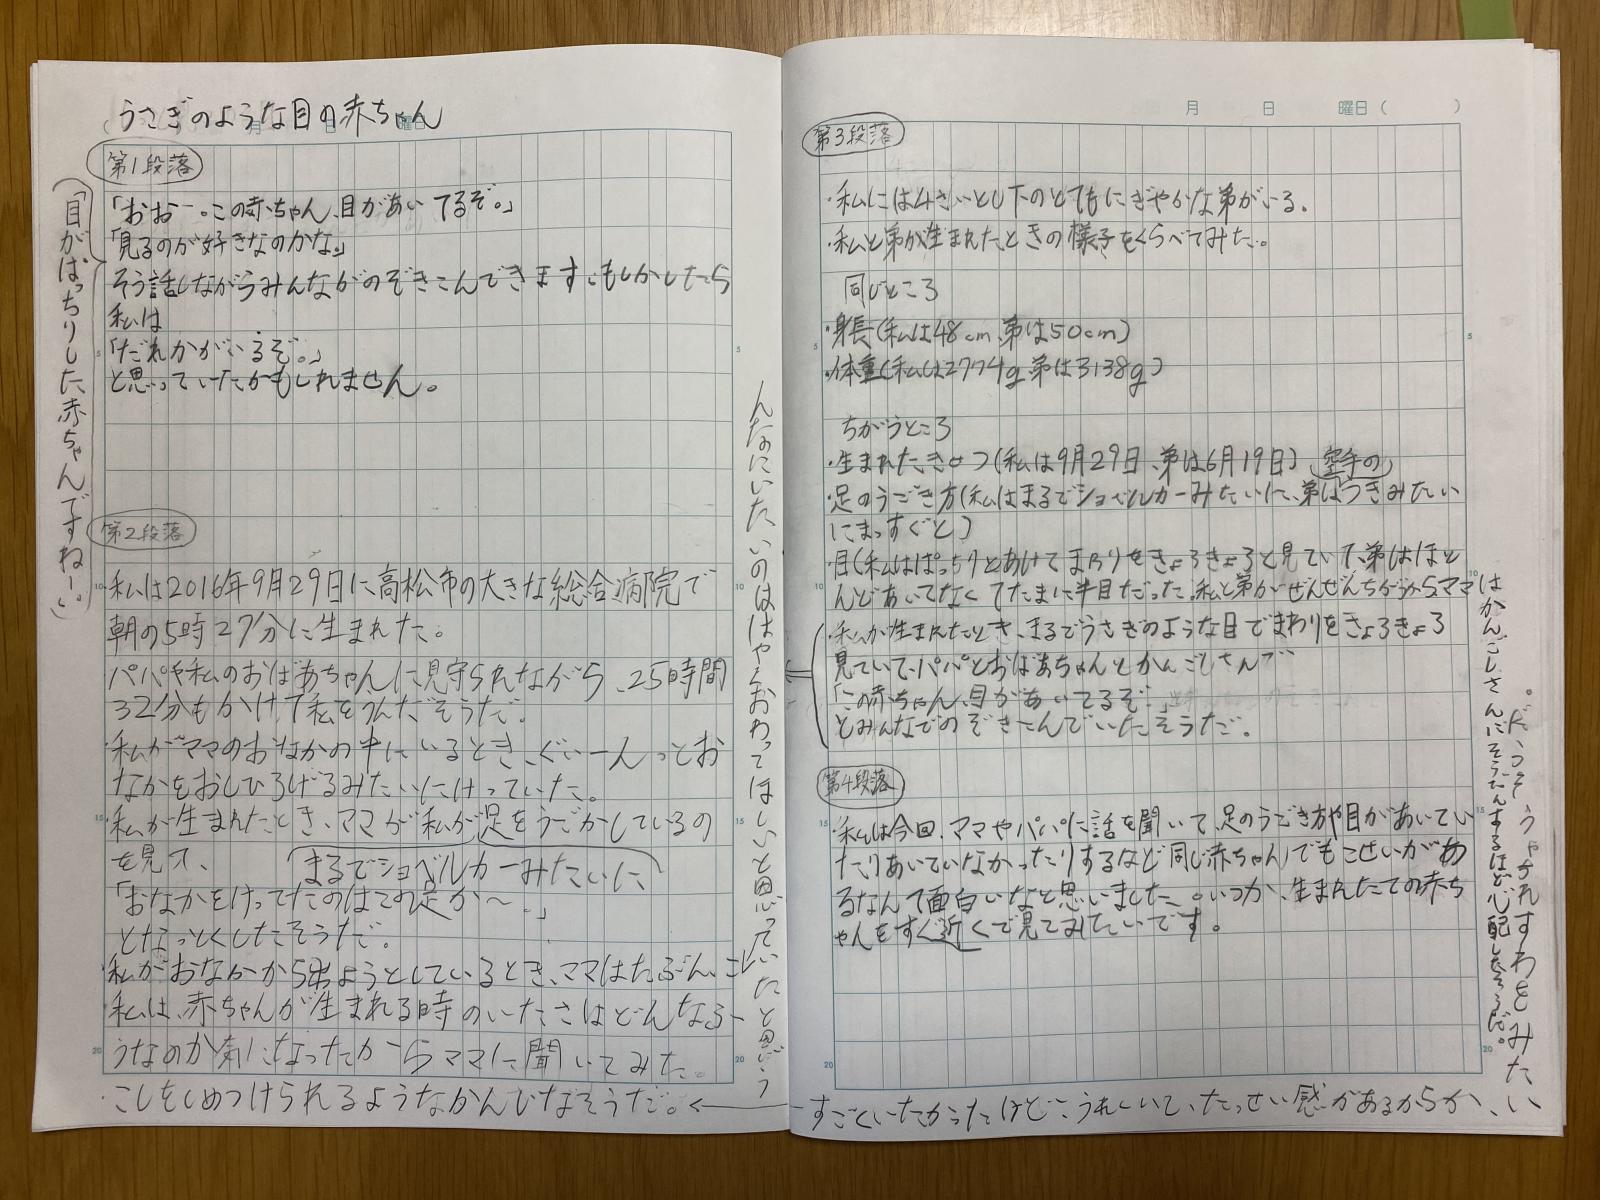 うさぎのような目の赤ちゃん
第1段落
「おおー。この赤ちゃん、目があいてるぞ。」
「見るのが好きなのかな。」
そう話しながらみんながのぞきこんできます。もしかしたら
私は
「だれかがいるぞ。」
と思っていたかもしれません。
「目がぱっちりした赤ちゃんですねー。」
第2段落
・私は2016年9月29日に高松市の大きな総合病院で
朝の5時27分に生まれた。
パパや私のおばあちゃんに見守られながら、25時間
32分もかけて私をうんだそうだ。
・私がママのおなかの中にいるとき、ぐぃーんっとお
なかをおしひろげるみたいにけっていた。
・私が生まれたとき、ママが私が足をうごかしているの
を見て、
まるでショベルカーみたいに
「おなかをけってたのはこの足か〜。」
となっとくしたそうだ。
・私がおなかから出ようとしているとき、ママはたぶん、こ
んなにいたいのははやくおわってほしいと思っていたと思う
・私は、赤ちゃんが生まれる時のいたさはどんなふー
うなのか気になったからママに聞いてみた。
・こしをしめつけられるようなかんじなそうだ。
すごくいたかったけど、うれしいて、たっせい感があるからか、い
たみをわすれちゃうそうだ。
月 日 曜日( )
第3段落
・私には4さいとし下のとてもにぎやかな弟がいる。
・私と弟が生まれたときの様子をくらべてみた。
同じところ
・身長(私は48cm、弟は50cm)
・体重(私は2774g弟は3138g)
ちがうところ
・生まれたきせつ(私は9月29日、弟は6月19日)
空手の
・足のうごき方(私はまるでショベルカーみたいに、弟はつきみたい
にまっすぐと)
・目(私はぱっちりとあけてまわりをきょろきょろと見ていて、弟はほと
んどあいてなくてたまに半目だった。私と弟がぜんぜんちがうからママ
はかんごしさんにそうだんするほど心配したそうだ。
・私が生まれたとき、まるでうさぎのような目でまわりをきょろきょろ
見ていて、パパとおばあちゃんとかんごしさんで
「この赤ちゃん、目があいてるぞ。」
とみんなでのぞきこんでいたそうだ。
第4段落
・私は今回、ママやパパに話を聞いて、足のうごき方や目があいてい
たりあいていなかったりするなど同じ赤ちゃんでもこせいがあ
るなんて面白いなと思いました。いつか、生まれたての赤ち
ゃんをすぐ近くで見てみたいです。